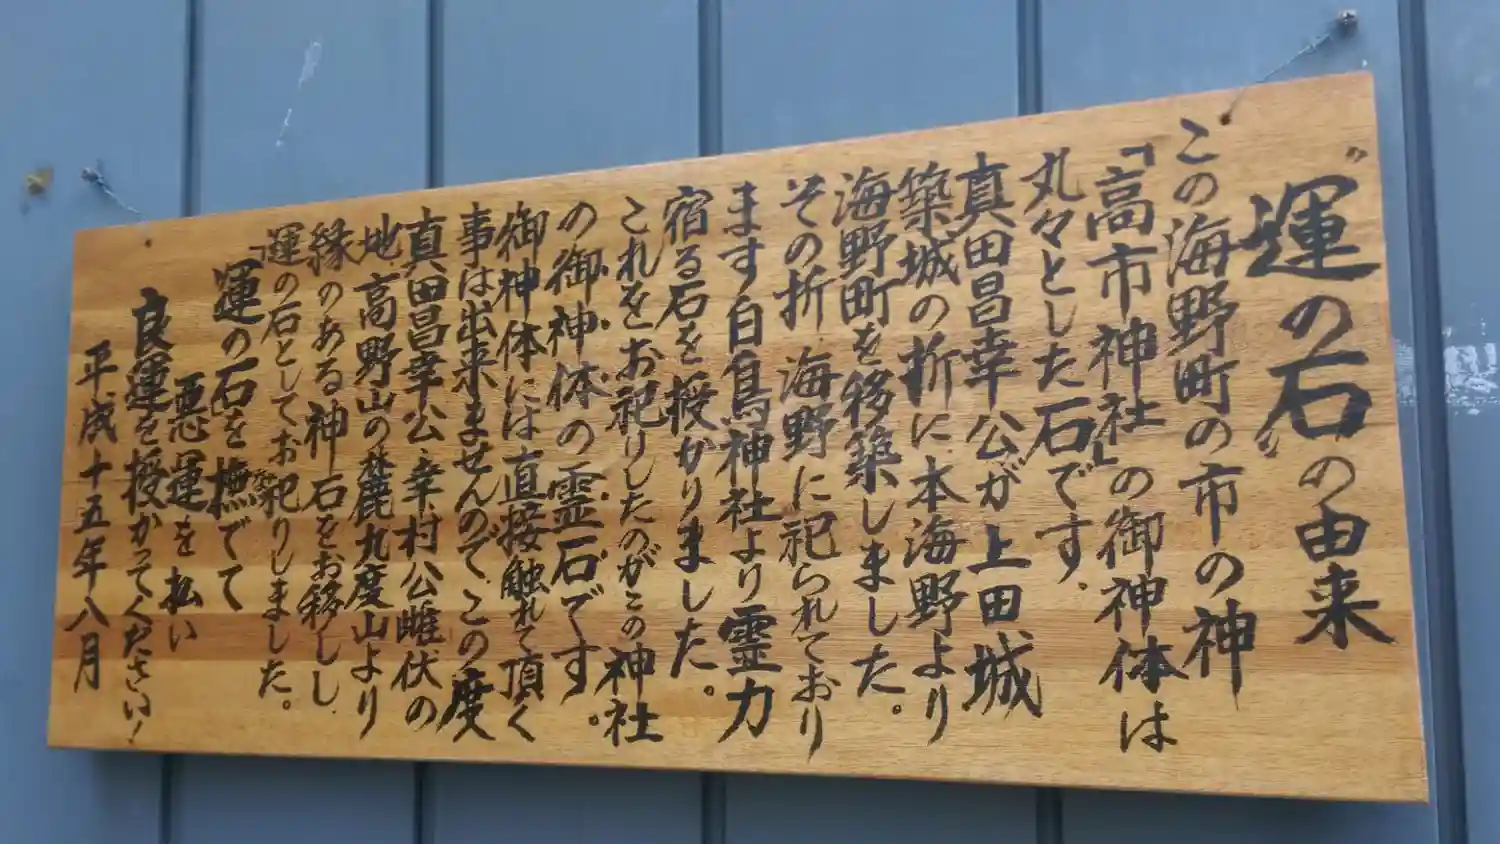 “運の石”の由来
この海野町の市の神
「高市神社」の御神体は
丸々とした石です.
真田昌幸公が上田城
築城の折に本海野より
海野町を移築しました。
その折、海野に祀られており
ます白鳥神社より霊力
宿る石を授かりました。
これをお祀りしたのがこの神社
の御神体の霊石です。
御神体には直接触れて頂く
事は出来ませんので、この度
真田昌幸公・幸村公雌伏の
地 高野山の麓九度山より
縁のある神石をお移しし、
運の石としてお祀りしました。
「運の石」を撫でて
悪運を払い
良運を授かってください!
平成十五年八月